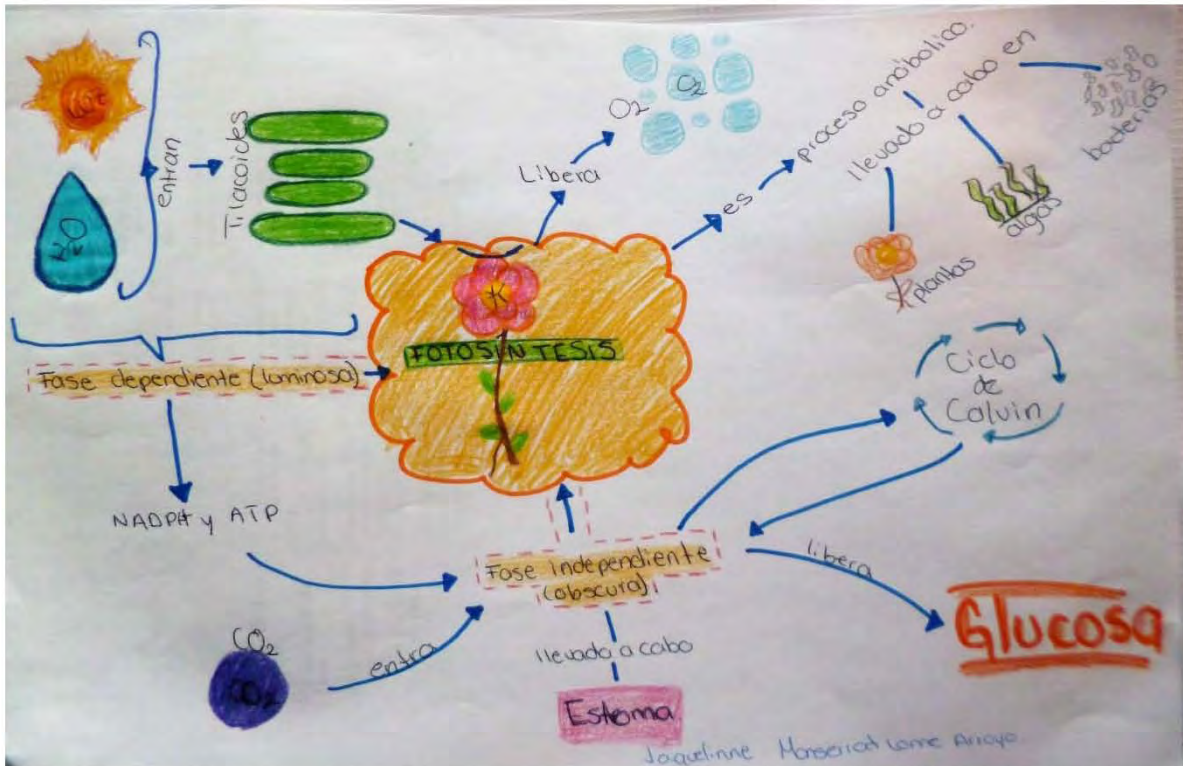 Luz
H₂O
entran
Tilacoides
Libera
O₂
O₂
es
proceso anabolico.
llevado a cabo en
bacterias
algas
plantas
FOTOSINTESIS
Fase dependiente (luminosa)
NADPH y ATP
Ciclo
de
Calvin
Fase independiente
(obscura)
libera
Glucosa
CO₂
CO₂
entra
llevada a cabo
Estoma
Jaquelinne Monserrat